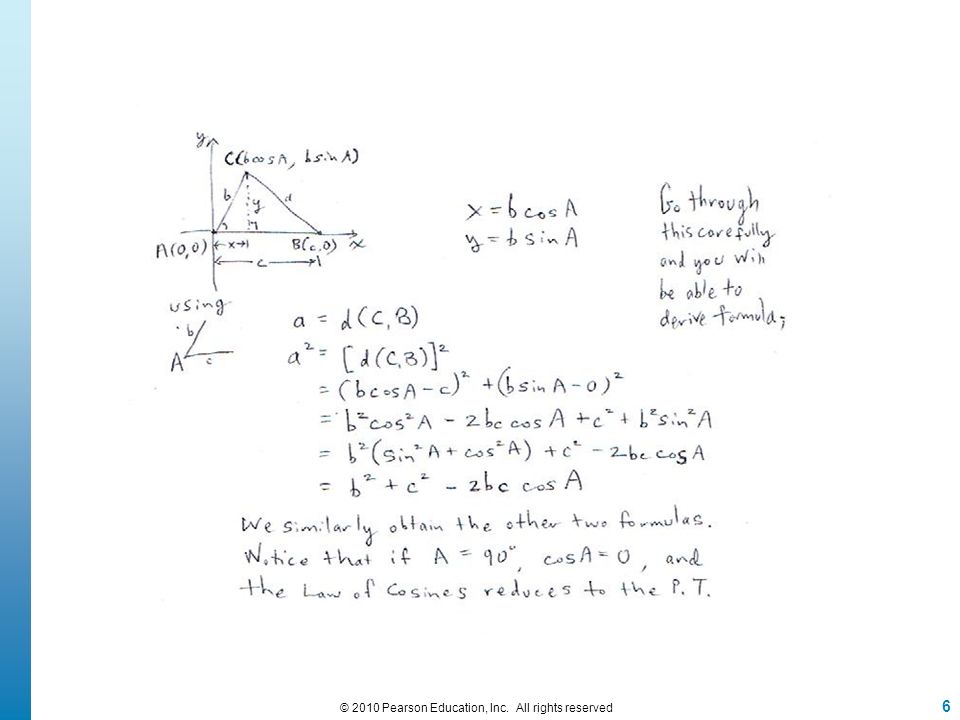 y
C(bcosA, bsinA)
b
y
d
A(0,0)
x
B(c,0)
x
c
x = b cosA
y = b sinA
Go through
this carefully
and you will
be able to
derive formula;
using
b
A
c
a = d(C,B)
a² = [d(C,B)]²
= (bcosA-c)² + (bsinA-0)²
= b²cos²A - 2bc cosA + c² + b²sin²A
= b²(sin²A + cos²A) + c² - 2bc cosA
= b² + c² - 2bc cosA
We similarly obtain the other two formulas.
Notice that if A = 90°, cosA=0, and
the Law of Cosines reduces to the P.T.
© 2010 Pearson Education, Inc. All rights reserved
6